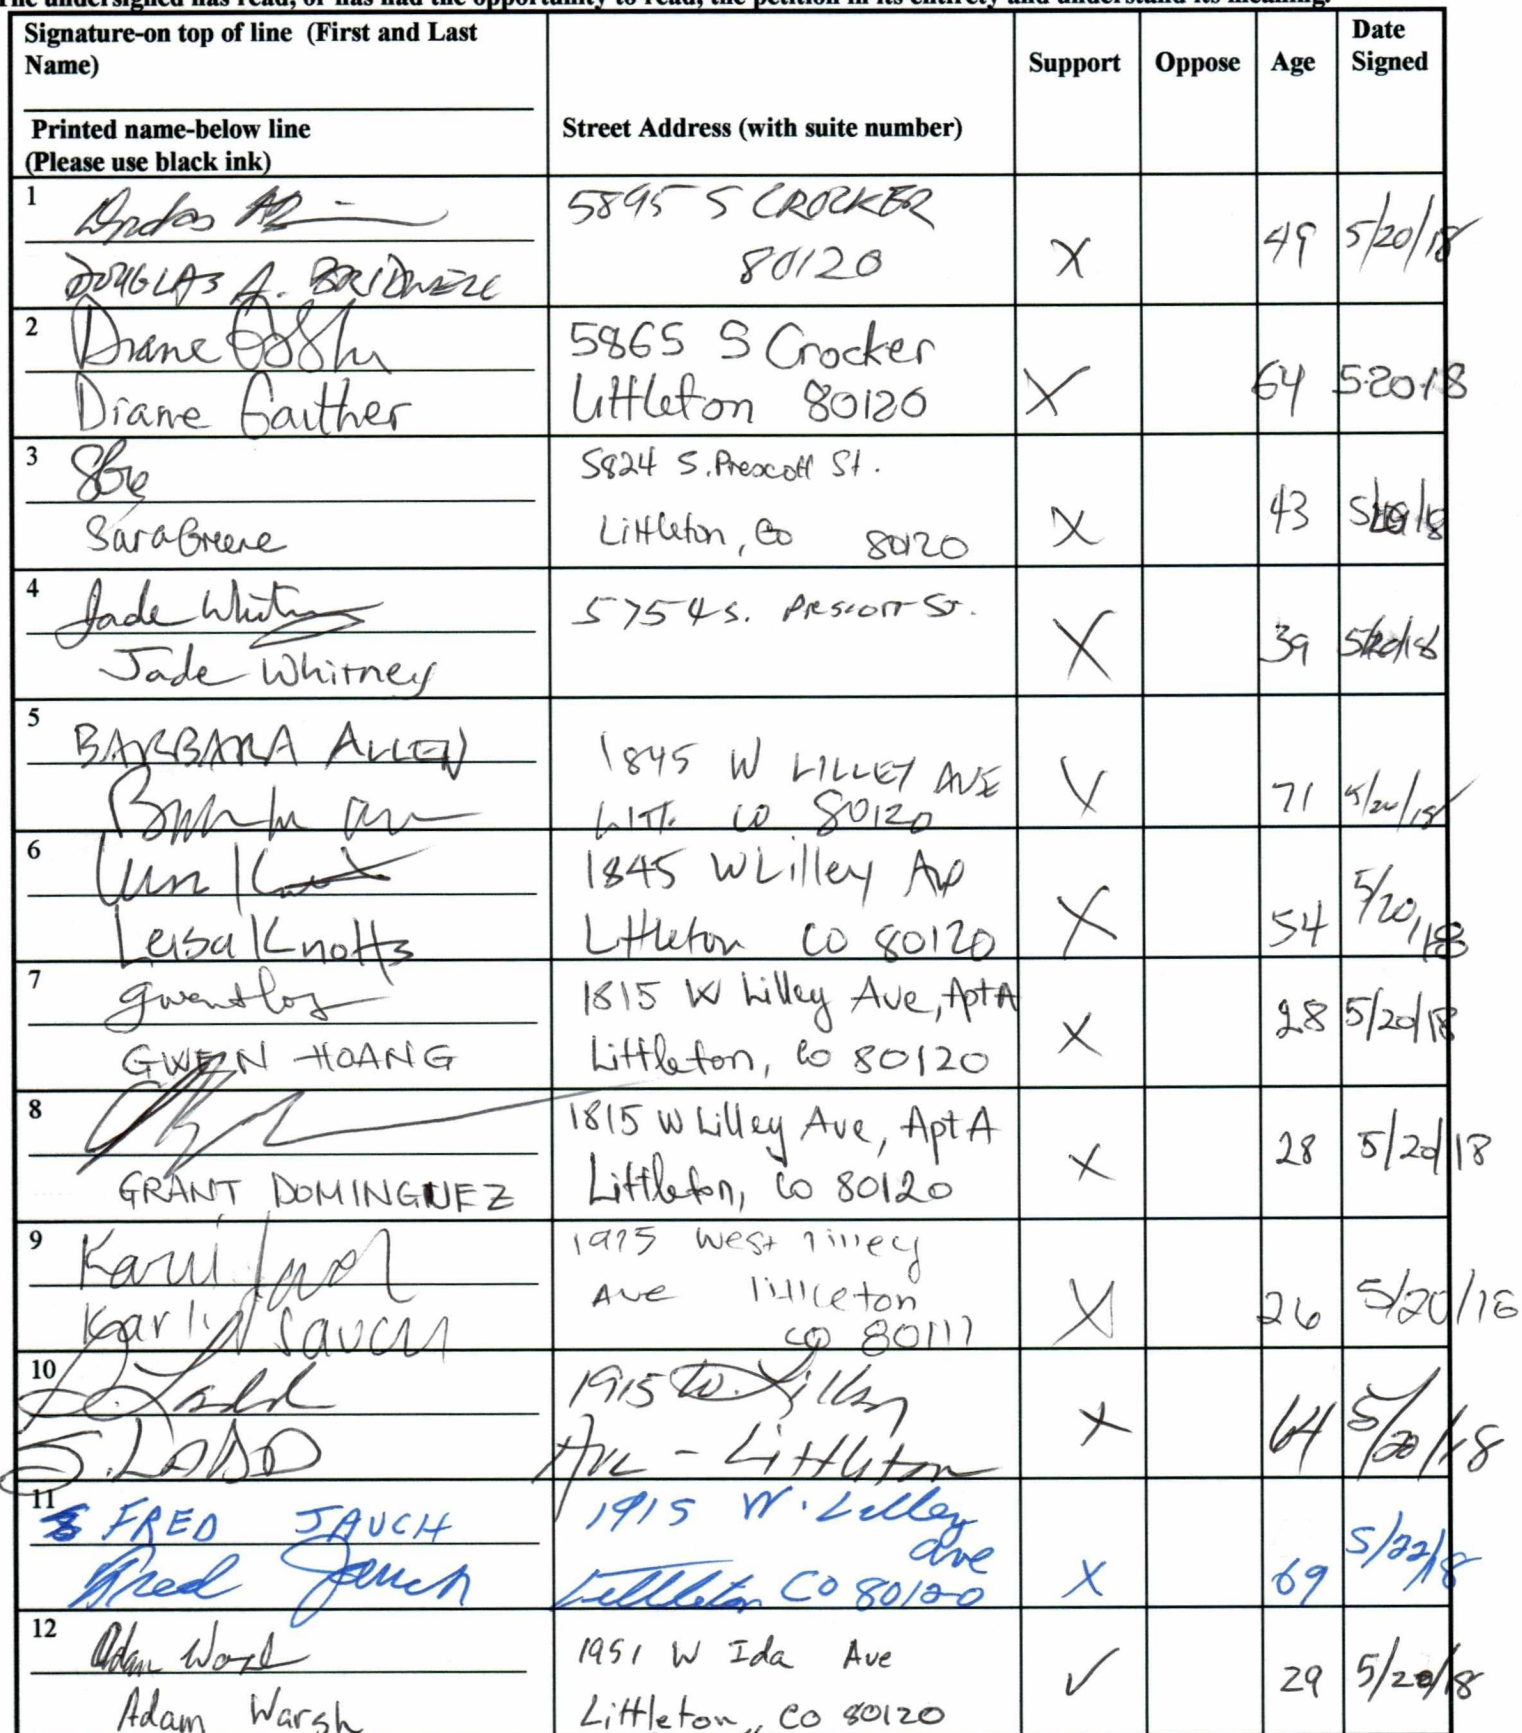 The undersigned has read, or has had the opportunity to read, the petition in its entirety and understand its meaning.
Signature-on top of line (First and Last Name)
Printed name-below line
(Please use black ink)
Street Address (with suite number)
Support
Oppose
Age
Date Signed
1
DOUGLAS A. BRIDWELL
5895 S CROCKER
80120
X
49
5/20/18
2
Diane
Diane Gaither
5865 S Crocker
Littleton 80120
X
64
5.20.18
3
Sara Greene
5824 S. Prescott St.
Littleton, Co 80120
X
43
4
Jade Whitney
Jade Whitney
5754 S. Prescott St.
X
39
5
BARBARA ALLEN
1845 W LILLEY AVE
LITT. CO 80120
71
5/20/18
6
Leisa Knotts
1845 W Lilley
Littleton CO 80120
X
54
5/20/18
7
GWEN HOANG
1815 W Lilley Ave, Apt A
Littleton, Co 80120
X
28
5/20/18
8
GRANT DOMINGUEZ
1815 W Lilley Ave, Apt A
Littleton, Co 80120
X
28
5/20/18
9
Karli Jauch
West lilley
Ave littleton
CO
X
26
5/20/18
10
Ladd
S. LADD
1915 W. Lilley
Ave - Littleton
X
64
5/20/18
11
FRED JAUCH
Fred Jauch
1915 W. Lilley
Ave
Littleton CO 80120
X
69
5/22/18
12
Adam
Adam Warsh
1951 W Ida Ave
Littleton, CO 80120
✓
29
5/20/18